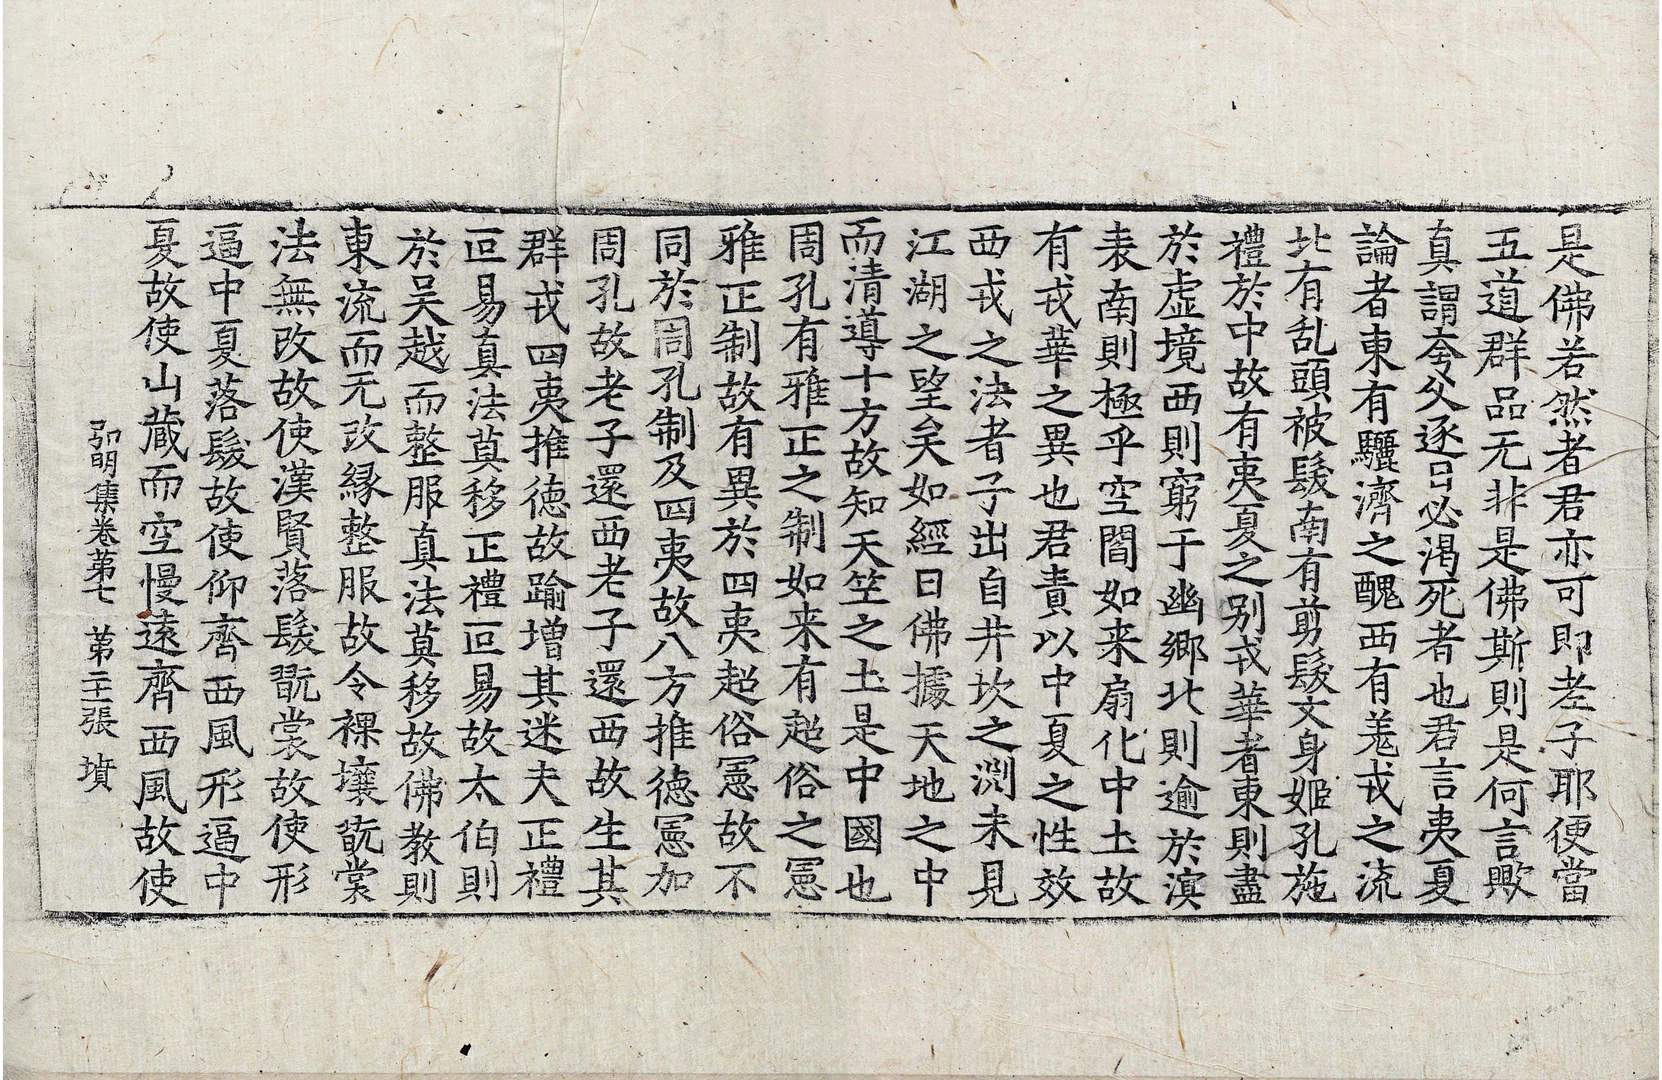 是佛若然者君亦可即老子耶便當
五道群品无非是佛斯則是何言歟
真謂夸父逐日必渴死者也君言夷夏
論者東有驪濟之醜西有羗戎之流
北有乱頭被髮南有剪髮文身姬孔施
禮於中故有夷夏之别戎華者東則盡
於虛境西則窮于幽鄉北則逾於溟
表南則極乎空閻如来扇化中土故
有戎華之異也君責以中夏之性效
西戎之法者子出自井坎之渕未見
江湖之望矣如經曰佛據天地之中
而清導十方故知天竺之土是中國也
周孔有雅正之制如来有超俗之憲
雅正制故有異於四夷超俗憲故不
同於周孔制及四夷故八方推德憲加
周孔故老子還西老子還西故生其
群戎四夷推德故踰增其迷夫正禮
叵易真法莫移正禮叵易故太伯則
於吴越而整服真法莫移故佛教則
東流而无改緣整服故令裸壤翫裳
法無改故使漢賢落髮翫裳故使形
逼中夏落髮故使仰齊西風形逼中
夏故使山藏而空慢遠齊西風故使
弘明集卷第七 第二十一張 墳